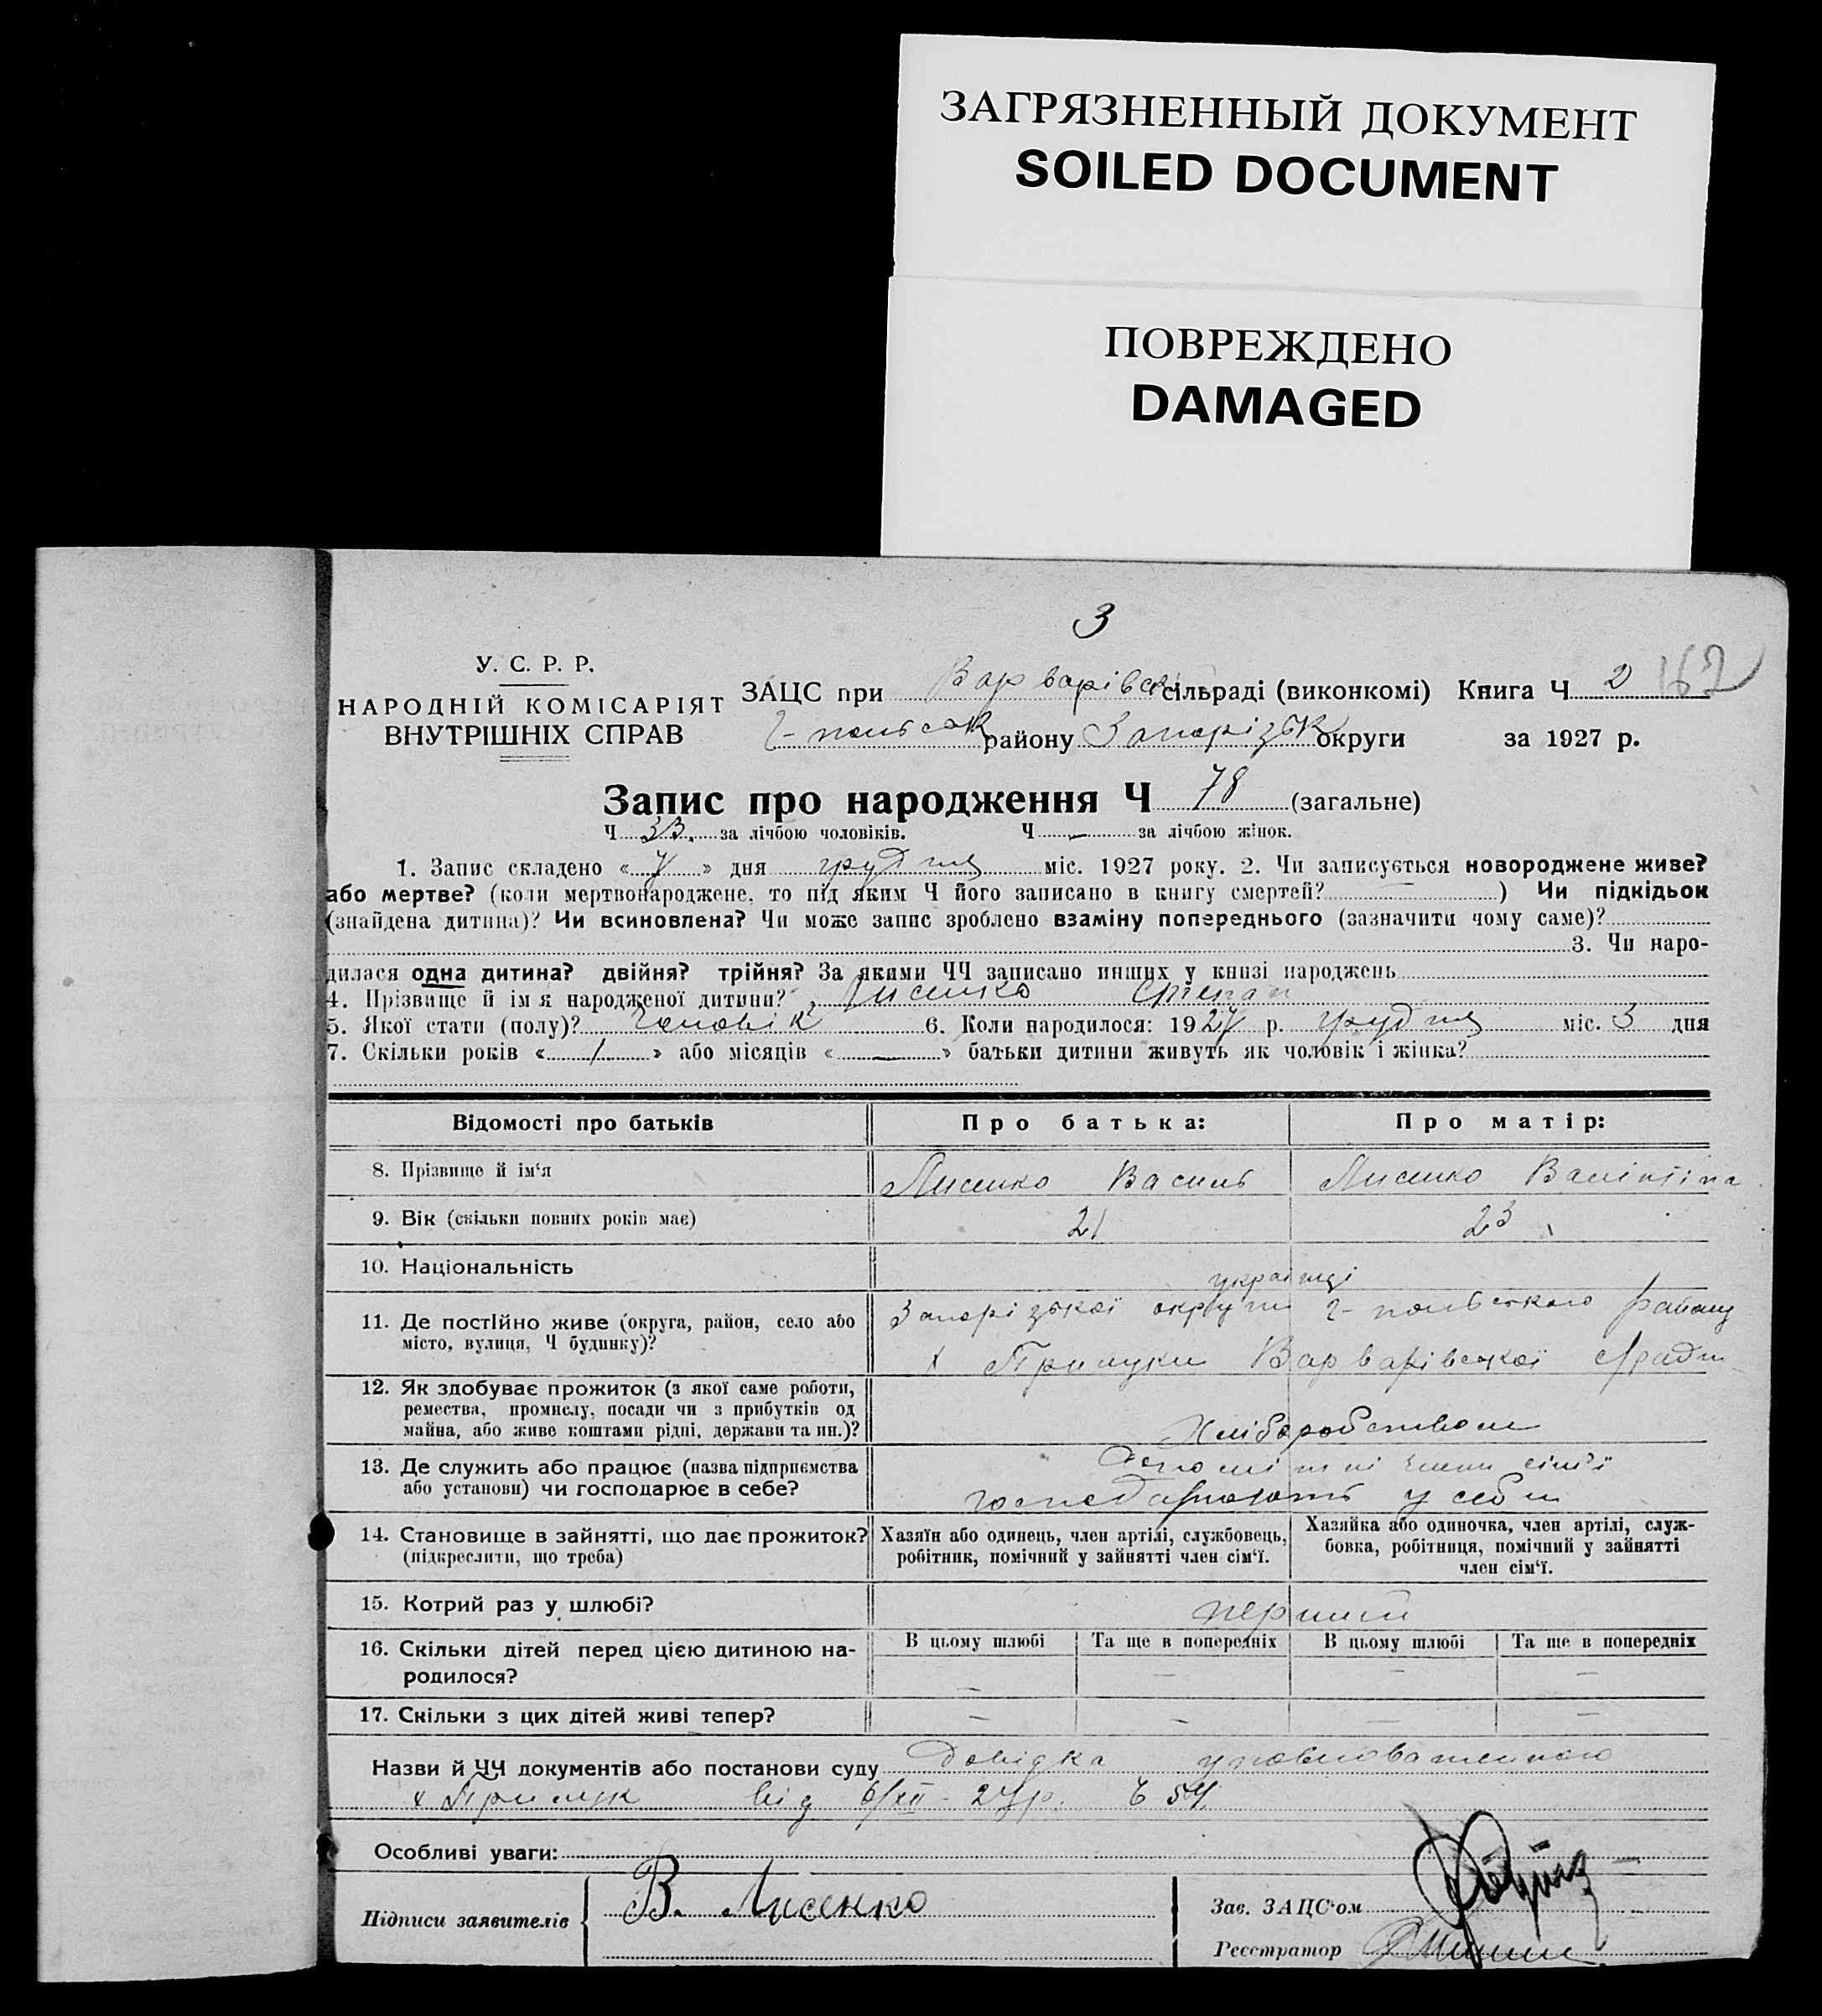 ЗАГРЯЗНЕННЫЙ ДОКУМЕНТ
SOILED DOCUMENT
ПОВРЕЖДЕНО
DAMAGED
3
У. С. Р. Р.
НАРОДНІЙ КОМІСАРІЯТ
ВНУТРІШНІХ СПРАВ
ЗАЦС при Варварівск сільраді (виконкомі) Книга Ч 2 167
Г-польськ району Запорізьк округи за 1927 р.
Запис про народження Ч 78 (загальне)
Ч 33. за лічбою чоловіків. Ч — за лічбою жінок.
1. Запис складено «7» дня грудня міс. 1927 року. 2. Чи записується новороджене живе?
або мертве? (коли мертвонароджене, то під яким Ч його записано в книгу смертей? ) Чи підкідьок
(знайдена дитина)? Чи всиновлена? Чи може запис зроблено взаміну попереднього (зазначити чому саме)?
3. Чи наро-
дилася одна дитина? двійня? трійня? За якими ЧЧ записано инших у книзі народжень
4. Прізвище й ім'я народженої дитини? Лисенко Степан
5. Якої стати (полу)? Чоловік 6. Коли народилося: 1927 р. грудня міс. 3 дня
7. Скільки років «1» або місяців «—» батьки дитини живуть як чоловік і жінка?
Відомості про батьків Про батька: Про матір:
8. Прізвище й ім'я Лисенко Василь Лисенко Валінтіна
9. Вік (скільки повних років має) 21 23
10. Національність українці
11. Де постійно живе (округа, район, село або місто, вулиця, Ч будинку)? Запорізької округи Г-польського району
х Прилуки Варварівської с/ради
12. Як здобуває прожиток (з якої саме роботи, ремества, промислу, посади чи з прибутків од майна, або живе коштами рідні, держави та ин.)? Хліборобством
13. Де служить або працює (назва підприємства або установи) чи господарює в себе? члени сім'ї
господарюють у себе
14. Становище в зайнятті, що дає прожиток? (підкреслити, що треба) Хазяїн або одинець, член артілі, службовець, робітник, помічний у зайнятті член сім'ї. Хазяйка або одиночка, член артілі, служ-бовка, робітниця, помічний у зайнятті член сім'ї.
15. Котрий раз у шлюбі? перший
16. Скільки дітей перед цією дитиною на-родилося? В цьому шлюбі — Та ще в попередніх — В цьому шлюбі — Та ще в попередніх —
17. Скільки з цих дітей живі тепер? — — — —
Назви й ЧЧ документів або постанови суду Довідка уповноваженого
х Прилук від 6/XII-27 р. Ч 54.
Особливі уваги:
Підписи заявителів В. Лисенко
Зав. ЗАЦС'ом
Реєстратор